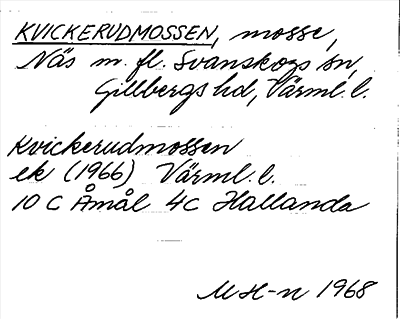 KVICKERUDMOSSEN, mosse,
Näs m. fl. Svanskogs sn,
Gillbergs hd, Värml. l.
Kvickerudmossen
ek (1966) Värml. l.
10 C Åmål 4c Hallanda
MH-n 1968